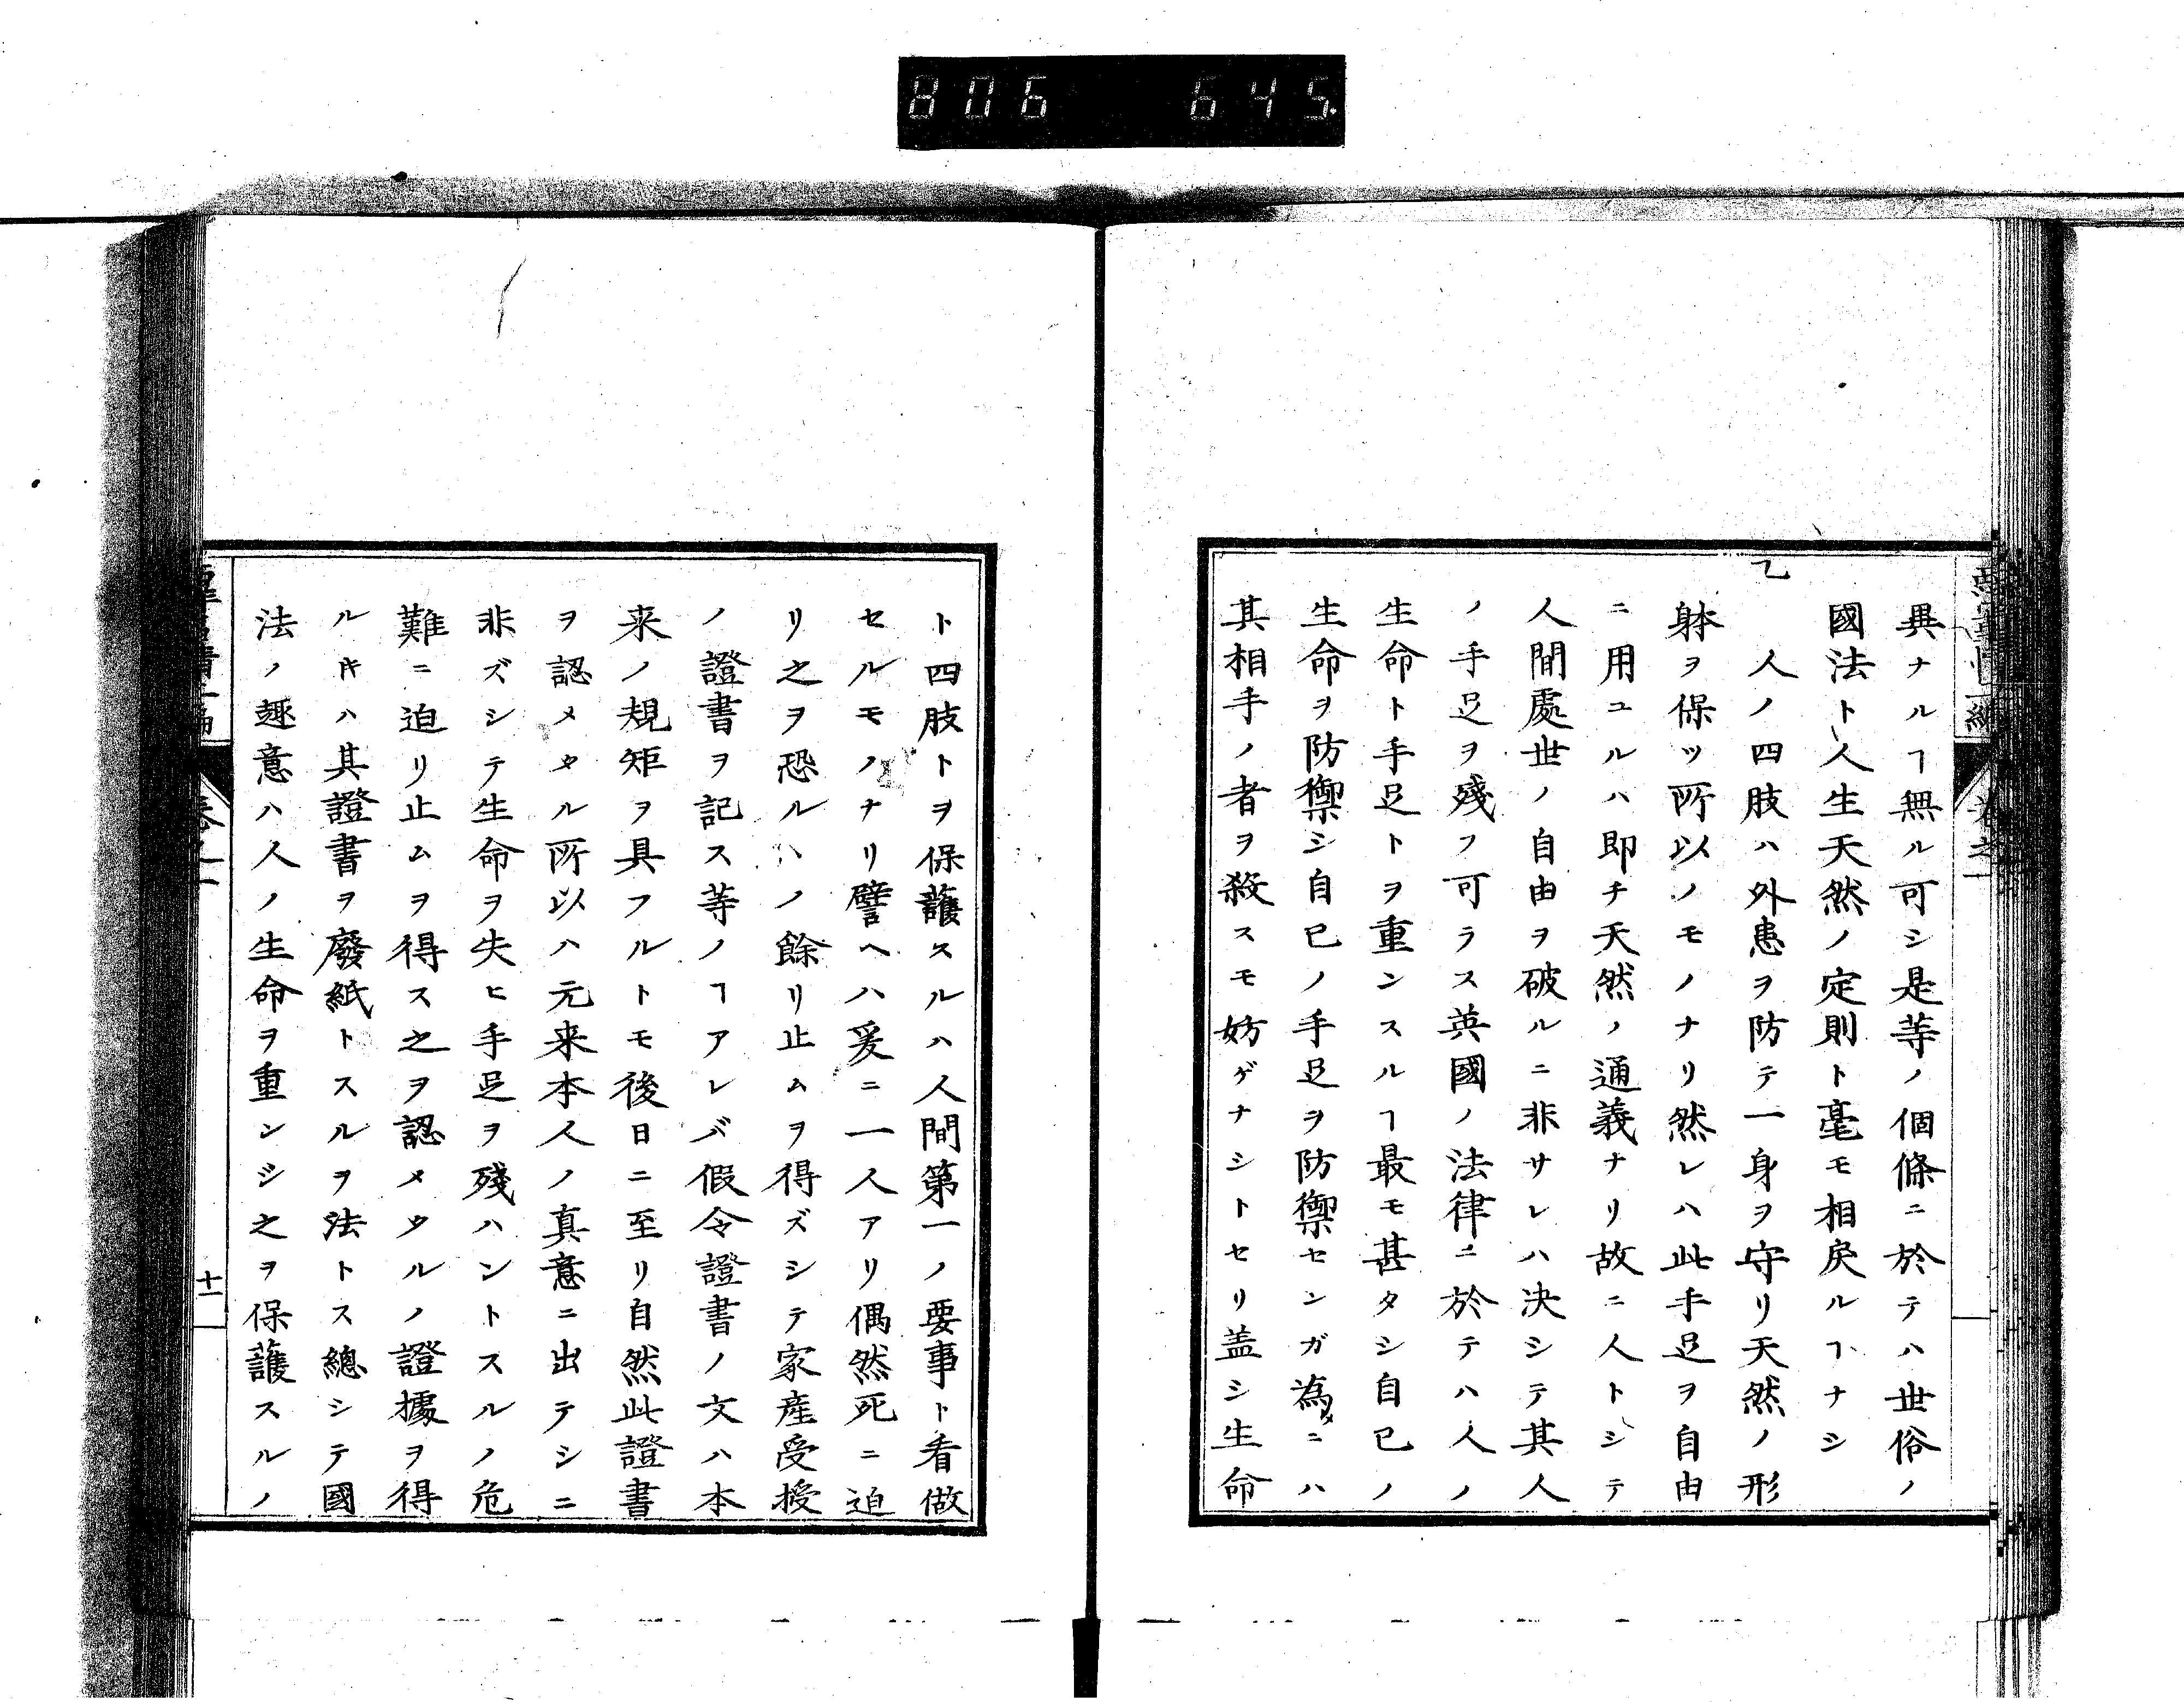 806 645
異ナルヿ無ル可シ是等ノ個條ニ於テハ世俗ノ
國法ト人生天然ノ定則ト毫モ相戻ルヿナシ
乙
人ノ四肢ハ外患ヲ防テ一身ヲ守リ天然ノ形
躰ヲ保ツ所以ノモノナリ然レハ此手足ヲ自由
ニ用ユルハ即チ天然ノ通義ナリ故ニ人トシテ
人間處世ノ自由ヲ破ルニ非サレハ决シテ其人
ノ手足ヲ殘フ可ラス英國ノ法律ニ於テハ人ノ
生命ト手足トヲ重ンスルヿ最モ甚タシ自己ノ
生命ヲ防禦シ自己ノ手足ヲ防禦センガ為メニハ
其相手ノ者ヲ殺スモ妨ゲナシトセリ盖シ生命
ト四肢トヲ保護スルハ人間第一ノ要事ト看做
セルモノナリ譬ヘハ爰ニ一人アリ偶然死ニ迫
リ之ヲ恐ルヽノ餘リ止ムヲ得ズシテ家産受授
ノ證書ヲ記ス等ノヿアレバ假令證書ノ文ハ本
来ノ規矩ヲ具フルトモ後日ニ至リ自然此證書
ヲ認メタル所以ハ元来本人ノ真意ニ出テシニ
非ズシテ生命ヲ失ヒ手足ヲ殘ハントスルノ危
難ニ迫リ止ムヲ得ス之ヲ認メタルノ證據ヲ得
ルキハ其證書ヲ廢紙トスルヲ法トス總シテ國
法ノ趣意ハ人ノ生命ヲ重ンシ之ヲ保護スルノ
十一